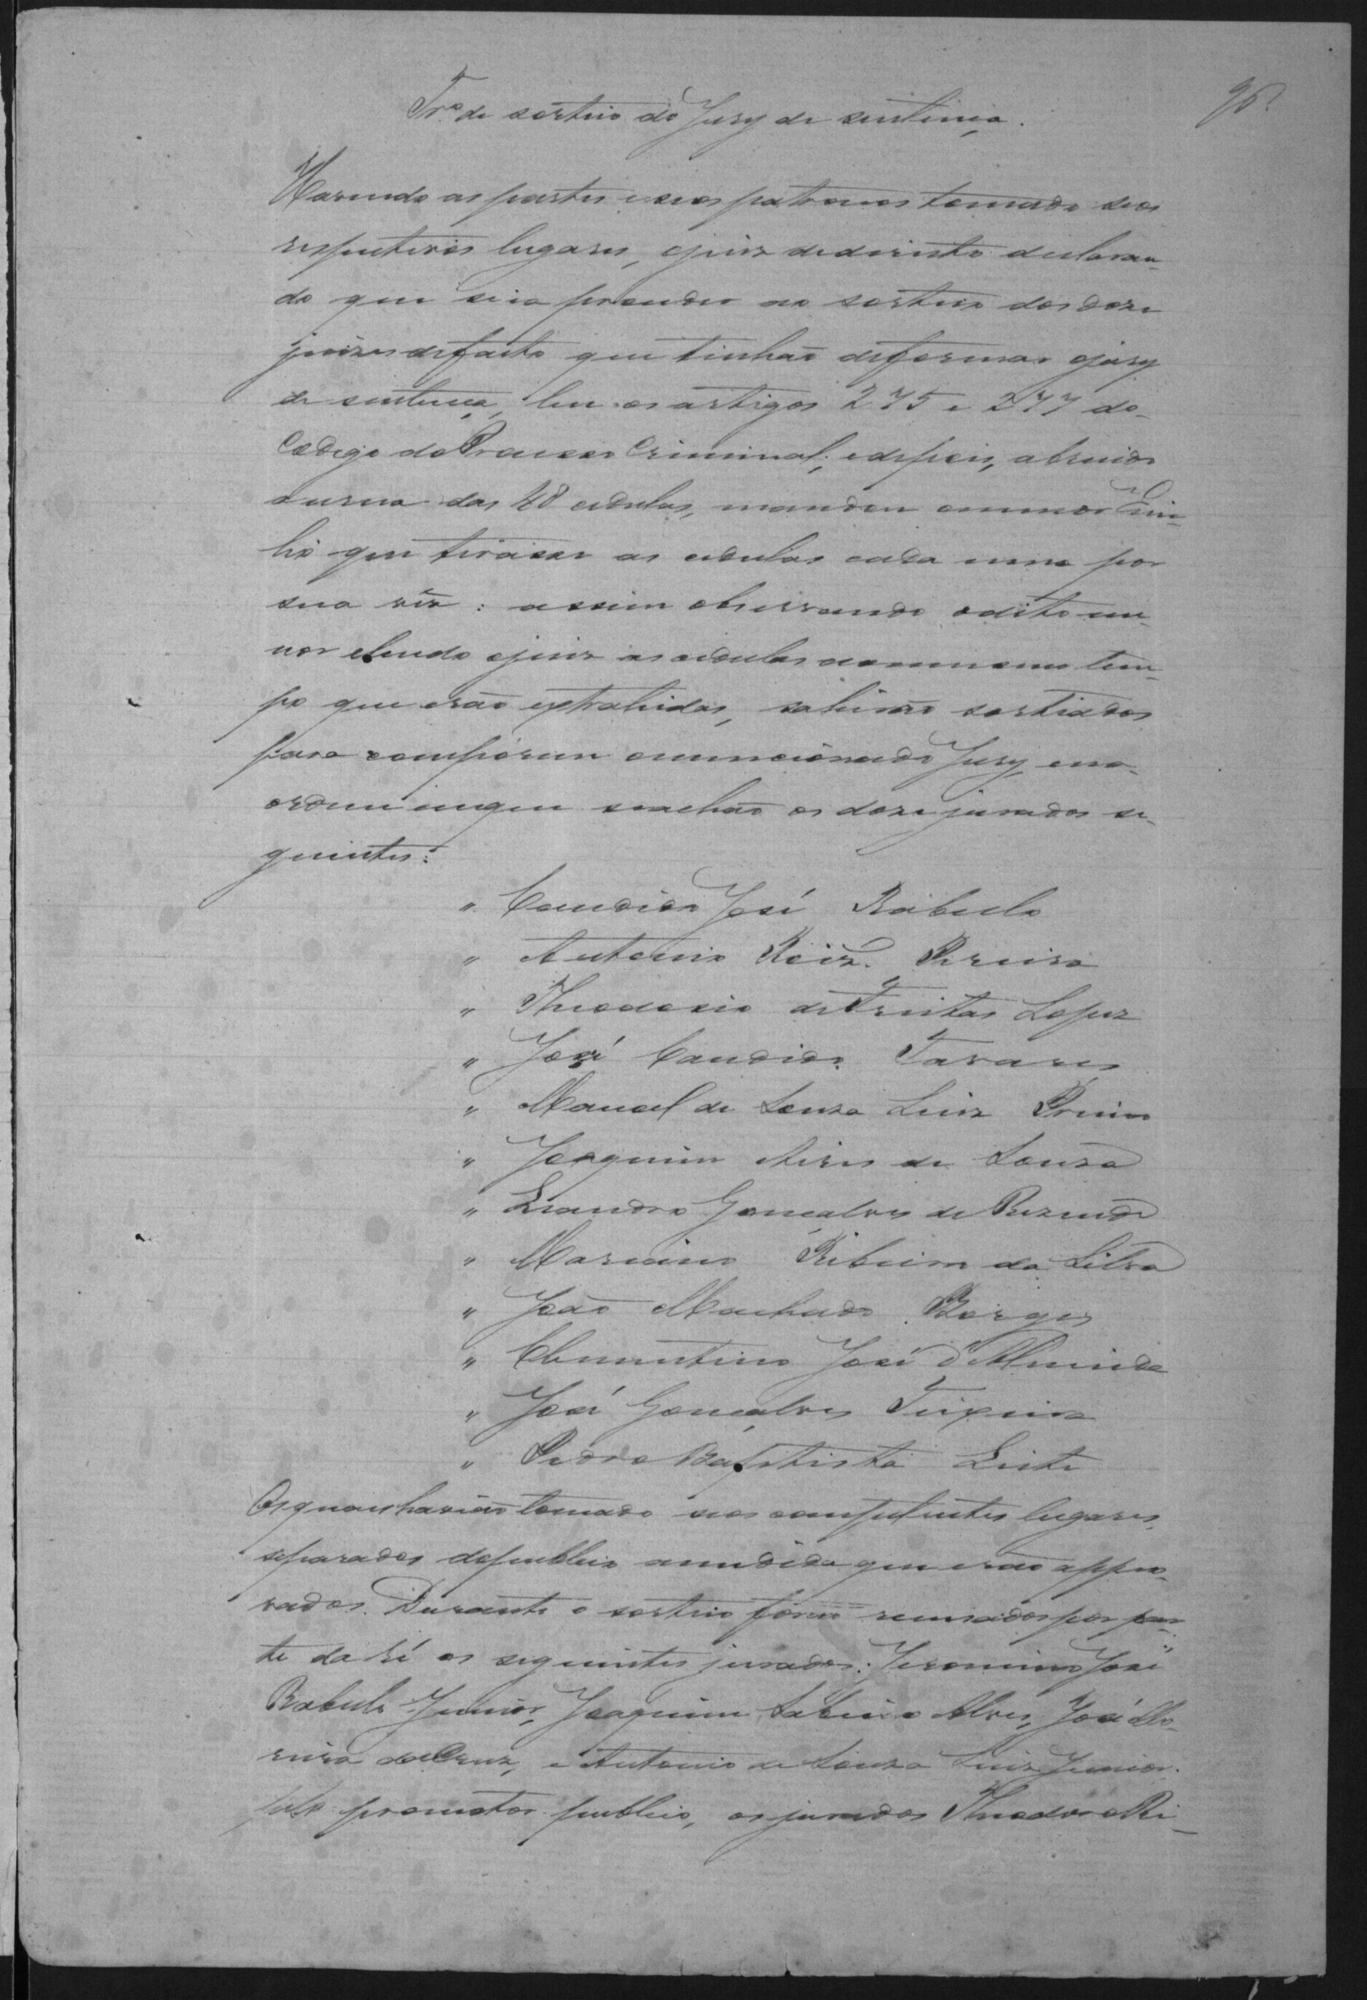 96
Tr.º de sorteio do Jury de sentença.
Havendo as partes e seos patronos tomado seos
respectivos lugares, o juiz de direito declaran-
do que se ia proceder ao sorteio dos doze
juizes de facto que tinhão de formar o jury
de sentença, leu os artigos 275 e 277 do
Codigo do Processo Criminal; e depois, abrindo
a urna das 48 cedulas, mandou o menor
que tirasse as cedulas cada uma por
sua vez: assim observando o dito me-
nor e lendo o juiz as cedulas ao mesmo tem-
po que erão extrahidas, sahirão sorteados
para comporem o mencionado Jury, na
ordem em que se achão os doze jurados se-
guintes:
" Candido José Rabello
" Antonio Roiz. Pereira
" Theodosio de Freitas Lopes
" José Candido Tavares
" Manoel de Souza Luiz Primo
" Joaquim Aires de Souza
" Leandro Gonçalves de Rezende
" Marciano Ribeiro da Silva
" João Machado Borges
" Clementino José d'Almeida
" José Gonçalves Teixeira
" Pedro Baptista Leite
Os quaes havião tomado seos competentes lugares,
separados do publico a medida que erão appro-
vados. Durante o sorteio forão recusados por par-
te da ré os seguintes jurados: Jeronimo José
Rabello Junior, Joaquim Sabino Alves, José Mo-
reira da Cruz, e Antonio de Souza Luiz Junior.
pelo promotor publico, os jurados Theodoro Ri-